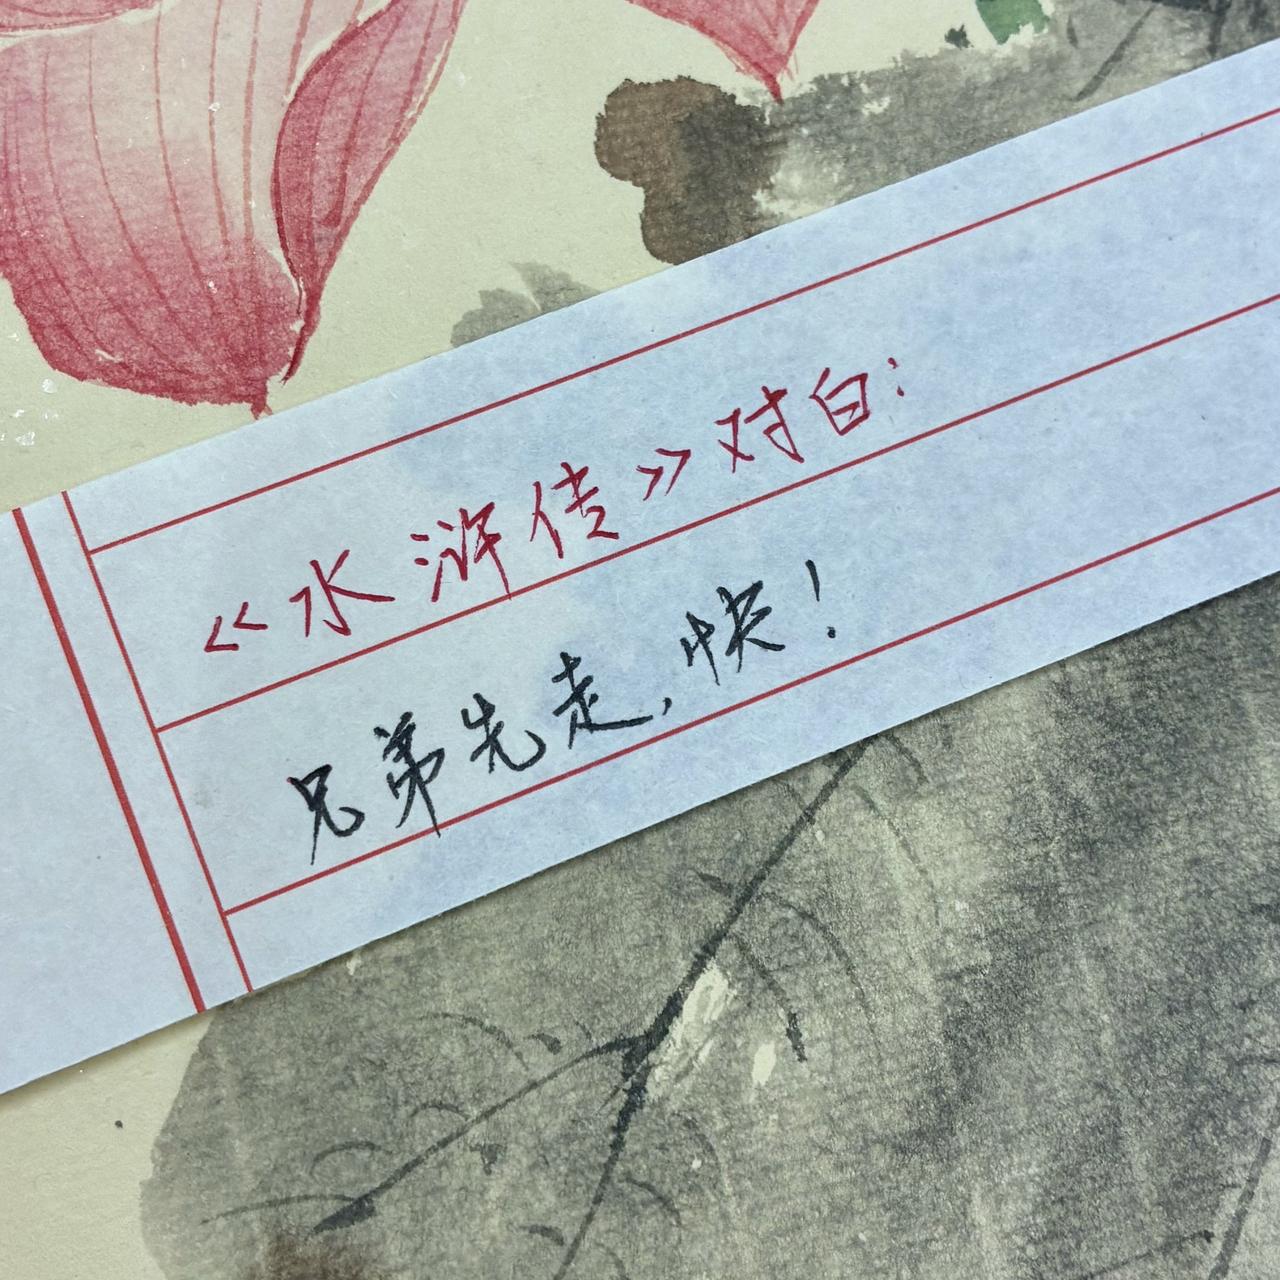 《水浒传》对白：
兄弟先走，快！